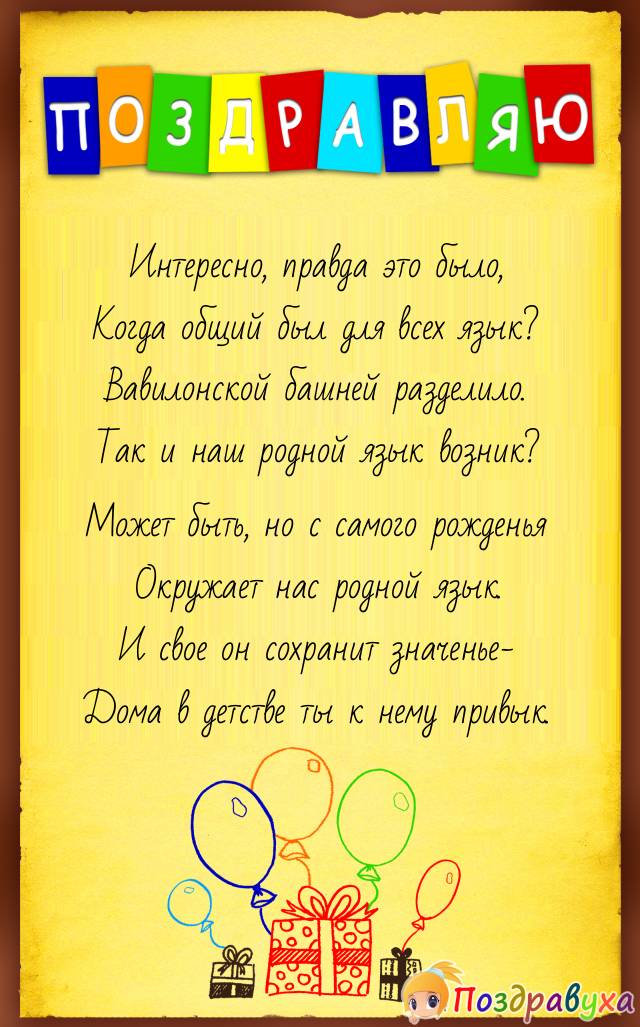 ПОЗДРАВЛЯЮ
Интересно, правда это было,
Когда общий был для всех язык?
Вавилонской башней разделило.
Так и наш родной язык возник?
Может быть, но с самого рожденья
Окружает нас родной язык.
И свое он сохранит значенье-
Дома в детстве ты к нему привык.
Поздравуха